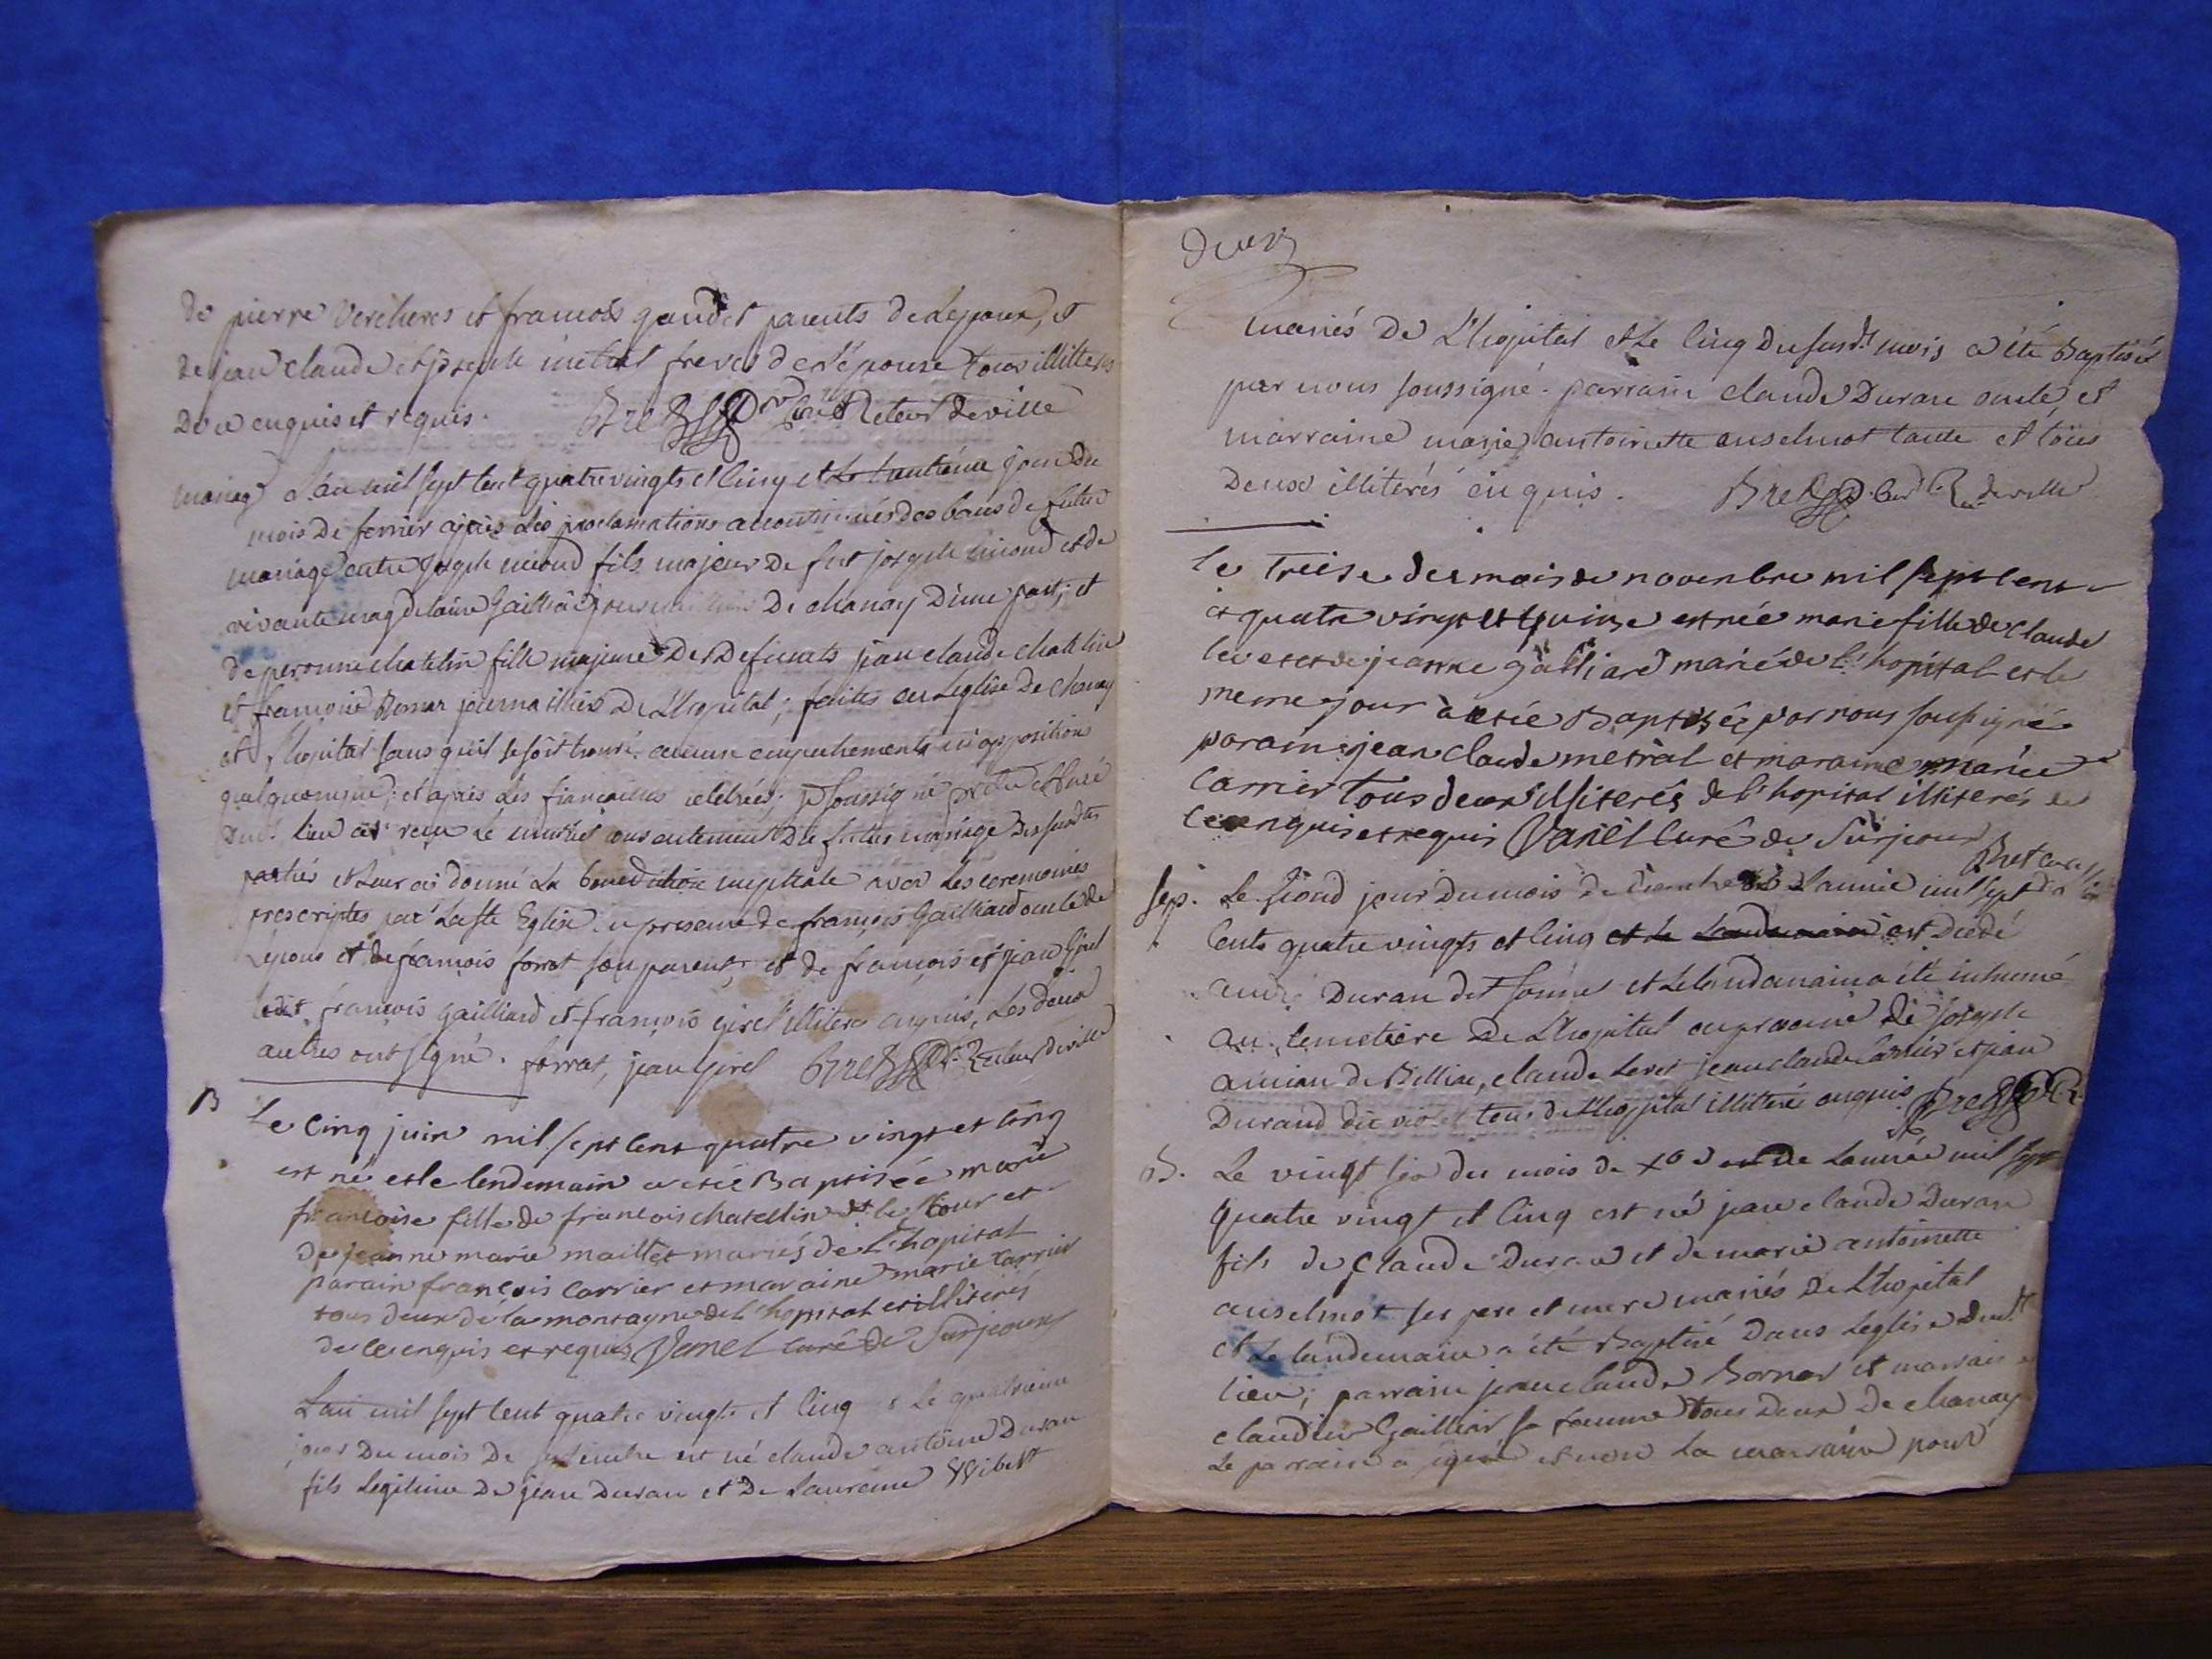 de pierre Vercheres et francois gaudet parents de Lepoux, et
de jean claude et joseph metral freres de l'épouse tous illiterés
de ce enquis et requis. Bret Curé Recteur de ville
mariag L'an mil sept cent quatre vingts et cinq et le huitième jour du
mois de fevrier après les proclamations accoutumées des bans de futur
mariage entre joseph fils majeur de fut joseph et de
vivante magdelaine Gailliard de chanay d'une part, et
de peronne chatelin fille majeure des defunts jean claude chatelin
et francoise Bornar journailliés de L'hopital; faites en Leglise de chanay
et L'hopital sans quil se soit trouvé aucun empechements ni opposition
quelquonque; et après les fiancailles celebrées; je soussigné pretre et curé
dud. lieu ai reçu le mutuel consentement du futur mariage des susdits
partiés et leur ai donné la benediction nuptiale avec les ceremonies
prescriptes par La ste Eglise. en presence de françois Gailliard oncle de
Lepoux et de francois forrat son parent, et de francois et jean Girel
ledit françois Gailliard et françois girel illiteré enquis, les deux
autres ont signé. forrat, jean Girel Bret Recteur de ville
B Le cinq juin mil sept cent quatre vingt et cinq
est né et le lendemain a etée Baptisée marie
francoise fille de francois chatellin dt le tour et
de jeanne marie maillet mariés de l'hopital
parain françois carrier et maraine marie carrier
tous deux de la montagne de l'hopital et illiterés
de ce enquis et requis Vanel curé de Surjoux
L'an mil sept cent quatre vingts et cinq le quatrieme
jour du mois de septembre est né claude antoine Duran
fils Legitime de jean Duran et de Laurence Wibert
deux
mariés de L'hopital et le cinq du susdt. mois a été Baptisé
par nous soussigné. parrain claude Duran oncle, et
marraine marie antoinette anselmot tante et tous
deux illiterés enquis. Bret Curé R. de ville
le treise du mois de novembre mil sept cent
et quatre vingt et quinze est née marie fille de claude
levet et de jeanne galliard marié de l'hopital et le
meme jour a etée Baptisée par nous soussigné
parain jean claude metral et maraine marie
carrier tous deux illiterés de l'hopital illiterés de
ce enquis et requis Vanel curé de Surjoux
Bret curé
sep. Le second jour du mois de decembre de L'année mil sept
cents quatre vingts et cinq et le Lendemain est decédé
Duran dt et le lendemain a été inhumé
au cemetiere de L'hopital en presence de joseph
de Billiac, claude levet jean claude carrier et jean
Durand dit tous de L'hopital illiteré enquis Bret C. R.
B. Le vingt six du mois de Xbre de L'année mil sept
quatre vingt et cinq est né jean claude Duran
fils de Claude Duran et de marie antoinette
anselmot ses pere et mere mariés de L'hopital
et Le lendemain a été Baptisé dans Leglise dudt
lieu; parrain jean claude Bornar et marraine
claudine Gailliar sa femme tous deux de chanay
Le parrain a signé et non La marraine pour